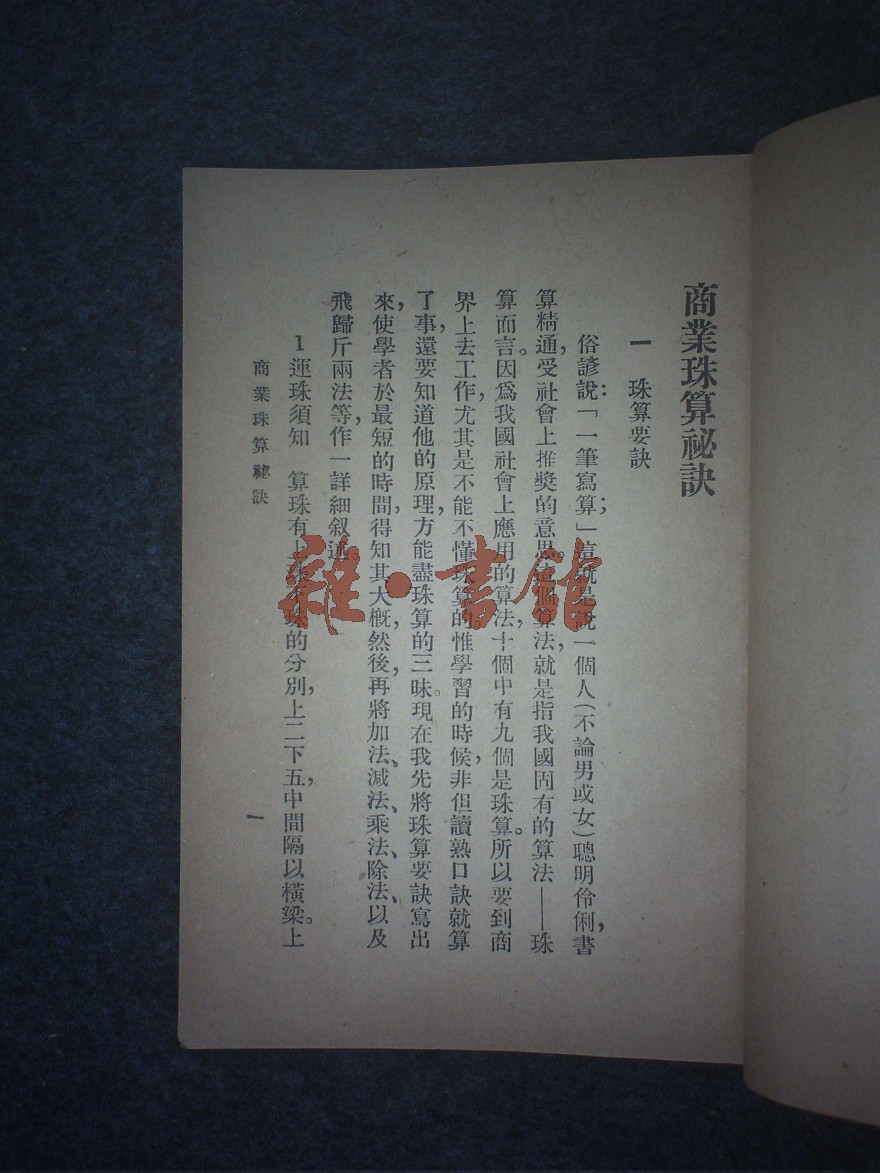 商業珠算祕訣
一　珠算要訣
俗諺說：「一筆寫算」；這就是說一個人（不論男或女）聰明伶俐，書
算精通，受社會上推獎的意思。這個算法，就是指我國固有的算法——珠
算而言。因爲我國社會上應用的算法，十個中有九個是珠算。所以要到商
界上去工作，尤其是不能不懂珠算的。惟學習的時候，非但讀熟口訣就算
了事，還要知道他的原理，方能盡珠算的三昧。現在我先將珠算要訣寫出
來，使學者於最短的時間，得知其大槪，然後，再將加法、減法、乘法、除法、以及
飛歸斤兩法等，作一詳細叙述。
1 運珠須知　算珠有上珠下珠的分別，上二下五，中間隔以橫梁。上
商業珠算祕訣
一
雜·書館